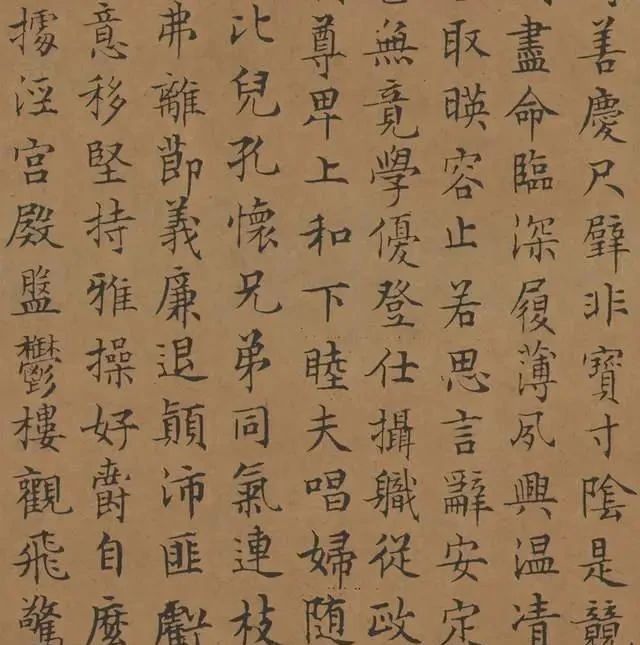 善慶尺璧非寶寸陰是競
盡命臨深履薄夙興温凊
取暎容止若思言辭安定
無竟學優登仕攝職從政
尊卑上和下睦夫唱婦随
比兒孔懷兄弟同氣連枝
弗離節義廉退顛沛匪虧
意移堅持雅操好爵自縻
據涇宫殿盤鬱樓觀飛驚